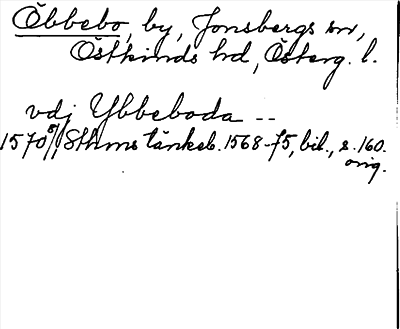 Öbbebo, by, Jonsbergs sn,
Östkinds hd, Österg. l.
vdj Ybbeboda --
1570 8/1 Sthms tänkeb. 1568-75, bil., s. 160.
orig.